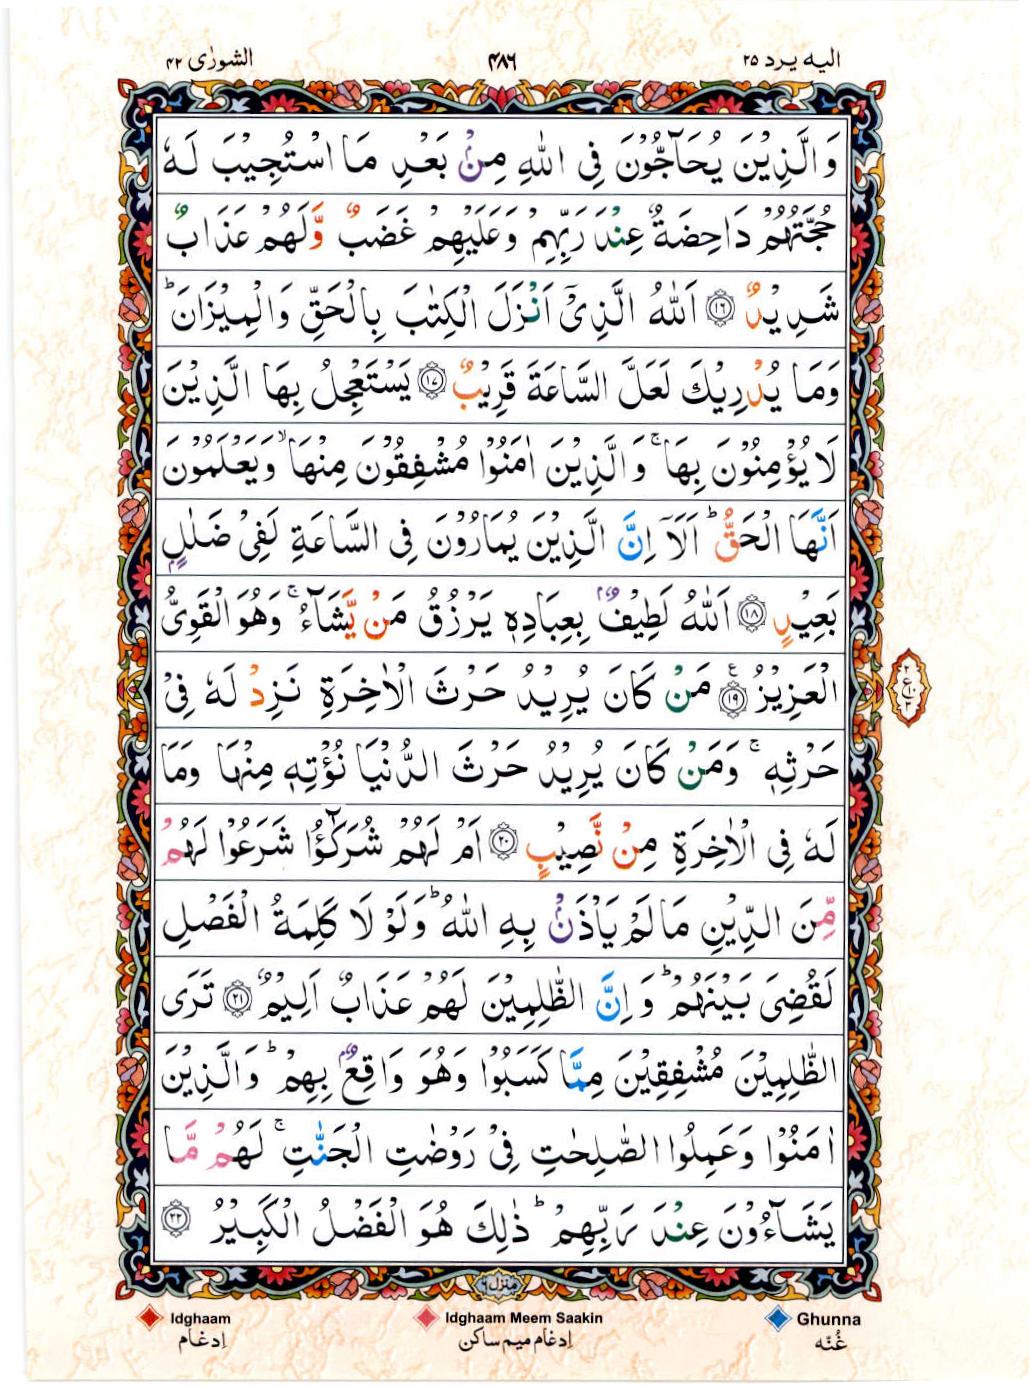 الشورٰی ۴۲
۴۸۶
الیه یرد ۲۵
وَالَّذِيْنَ يُحَآجُّوْنَ فِى اللّٰهِ مِنْۢ بَعْدِ مَا اسْتُجِيْبَ لَهٗ
حُجَّتُهُمْ دَاحِضَةٌ عِنْدَ رَبِّهِمْ وَعَلَيْهِمْ غَضَبٌ وَّلَهُمْ عَذَابٌ
شَدِيْدٌ ﴿۱۶﴾ اَللّٰهُ الَّذِىْٓ اَنْزَلَ الْكِتٰبَ بِالْحَقِّ وَالْمِيْزَانَ ؕ
وَمَا يُدْرِيْكَ لَعَلَّ السَّاعَةَ قَرِيْبٌ ﴿۱۷﴾ يَسْتَعْجِلُ بِهَا الَّذِيْنَ
لَا يُؤْمِنُوْنَ بِهَا ۚ وَالَّذِيْنَ اٰمَنُوْا مُشْفِقُوْنَ مِنْهَا ۙ وَيَعْلَمُوْنَ
اَنَّهَا الْحَقُّ ؕ اَلَآ اِنَّ الَّذِيْنَ يُمَارُوْنَ فِى السَّاعَةِ لَفِىْ ضَلٰلٍۢ
بَعِيْدٍ ﴿۱۸﴾ اَللّٰهُ لَطِيْفٌۢ بِعِبَادِهٖ يَرْزُقُ مَنْ يَّشَآءُ ۚ وَهُوَ الْقَوِىُّ
الْعَزِيْزُ ﴿۱۹﴾ ع مَنْ كَانَ يُرِيْدُ حَرْثَ الْاٰخِرَةِ نَزِدْ لَهٗ فِىْ
حَرْثِهٖ ۚ وَمَنْ كَانَ يُرِيْدُ حَرْثَ الدُّنْيَا نُؤْتِهٖ مِنْهَا وَمَا
لَهٗ فِى الْاٰخِرَةِ مِنْ نَّصِيْبٍ ﴿۲۰﴾ اَمْ لَهُمْ شُرَكٰٓؤُا شَرَعُوْا لَهُمْ
مِّنَ الدِّيْنِ مَا لَمْ يَاْذَنْۢ بِهِ اللّٰهُ ؕ وَلَوْ لَا كَلِمَةُ الْفَصْلِ
لَقُضِىَ بَيْنَهُمْ ؕ وَاِنَّ الظّٰلِمِيْنَ لَهُمْ عَذَابٌ اَلِيْمٌ ﴿۲۱﴾ تَرَى
الظّٰلِمِيْنَ مُشْفِقِيْنَ مِمَّا كَسَبُوْا وَهُوَ وَاقِعٌۢ بِهِمْ ؕ وَالَّذِيْنَ
اٰمَنُوْا وَعَمِلُوا الصّٰلِحٰتِ فِىْ رَوْضٰتِ الْجَنّٰتِ ۚ لَهُمْ مَّا
يَشَآءُوْنَ عِنْدَ رَبِّهِمْ ؕ ذٰلِكَ هُوَ الْفَضْلُ الْكَبِيْرُ ﴿۲۲﴾
منزل ۶
Idghaam
ادغام
Idghaam Meem Saakin
ادغام میم ساکن
Ghunna
غُنّه